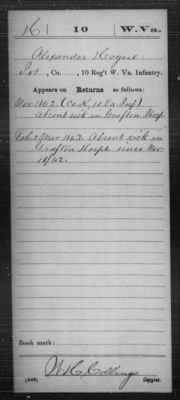 H | 10 | W.Va.
Alexander Hogue
Pvt., Co. , 10 Reg't W. Va. Infantry.
Appears on Returns as follows:
Nov 1862. (Co K, 10 Va Inft)
Absent sick in Grafton Hosp
Feb & Mar 1863. Absent sick in
Grafton Hosptl. since Nov
18/62.
Book mark:
W. H. Collings
Copyist.